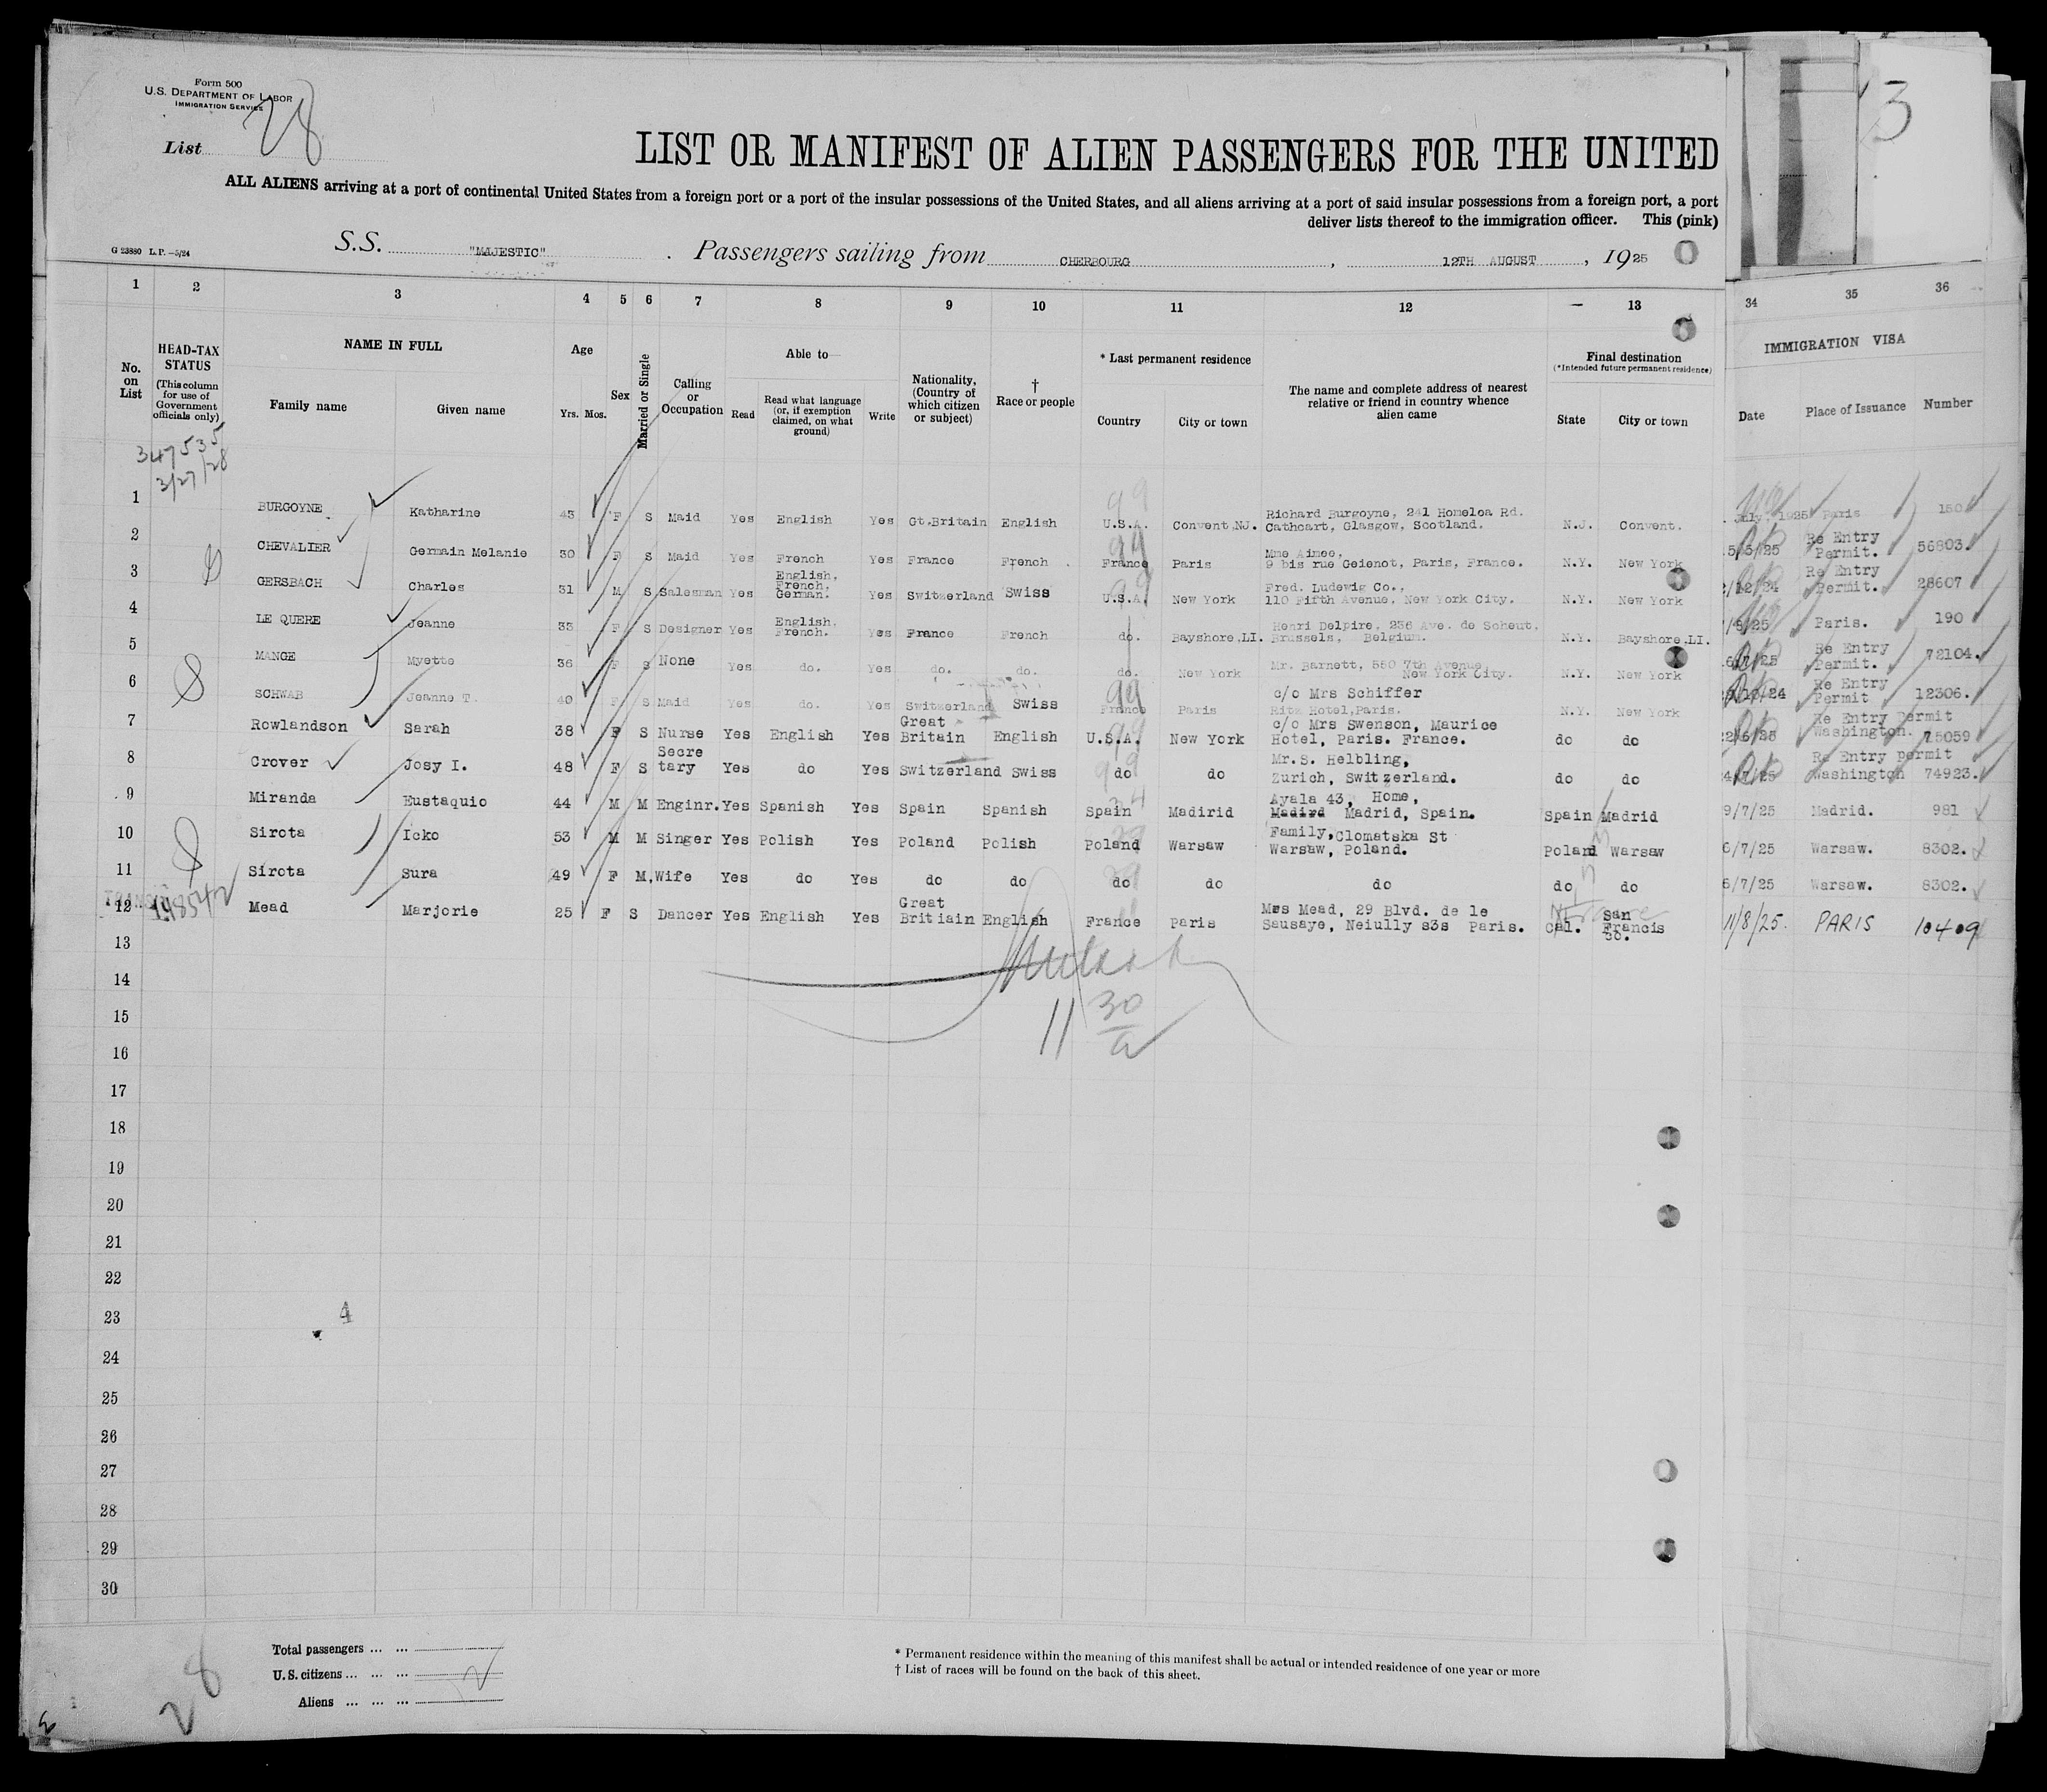 Form 500
U.S. DEPARTMENT OF LABOR
IMMIGRATION SERVICE
28
3
List
LIST OR MANIFEST OF ALIEN PASSENGERS FOR THE UNITED
ALL ALIENS arriving at a port of continental United States from a foreign port or a port of the insular possessions of the United States, and all aliens arriving at a port of said insular possessions from a foreign port, a port
deliver lists thereof to the immigration officer. This (pink)
G 23880 L.P.—5/24
S.S. "MAJESTIC". Passengers sailing from CHERBOURG, 12TH AUGUST, 1925
1 2 3 4 5 6 7 8 9 10 11 12 — 13 34 35 36
No. on List
HEAD-TAX STATUS
(This column for use of Government officials only)
NAME IN FULL
Family name
Given name
Age
Yrs. Mos.
Sex
Married or Single
Calling or Occupation
Able to—
Read
Read what language (or, if exemption claimed, on what ground)
Write
Nationality, (Country of which citizen or subject)
† Race or people
* Last permanent residence
Country
City or town
The name and complete address of nearest relative or friend in country whence alien came
Final destination
(*Intended future permanent residence)
State
City or town
IMMIGRATION VISA
Date
Place of Issuance
Number
347535
3/27/28
1 BURGOYNE Katharine 43 F S Maid Yes English Yes Gt.Britain English U.S.A. Convent,NJ. Richard Burgoyne, 241 Homeloa Rd. Cathcart, Glasgow, Scotland. N.J. Convent. July, 1925 Paris 150
2 CHEVALIER Germain Melanie 30 F S Maid Yes French Yes France French France Paris Mme Aimee, 9 bis rue Geienot, Paris, France. N.Y. New York 5/5/25 Re Entry Permit. 56803.
3 GERSBACH Charles 31 M S Salesman Yes English, French, German. Yes Switzerland Swiss U.S.A. New York Fred. Ludewig Co., 110 Fifth Avenue, New York City. N.Y. New York 2/12/24 Re Entry Permit. 28607
4 LE QUERE Jeanne 33 F S Designer Yes English, French. Yes France French do. Bayshore,LI. Henri Delpire, 236 Ave. de Scheut, Brussels, Belgium. N.Y. Bayshore,LI. /8/25 Paris. 190
5 MANGE Myette 36 F S None Yes do. Yes do. do. do. New York Mr. Barnett, 550 7th Avenue, New York City. N.Y. New York 6/7/25 Re Entry Permit. 72104.
6 SCHWAB Jeanne T. 40 F S Maid Yes do. Yes Switzerland Swiss France Paris c/o Mrs Schiffer Ritz Hotel,Paris. N.Y. New York /10/24 Re Entry Permit 12306.
7 Rowlandson Sarah 38 F S Nurse Yes English Yes Great Britain English U.S.A. New York c/o Mrs Swenson, Maurice Hotel, Paris. France. do do 2/6/25 Re Entry Permit Washington. 75059
8 Crover Josy I. 48 F S Secre tary Yes do Yes Switzerland Swiss do do Mr.S. Helbling, Zurich, Switzerland. do do 4/7/25 Re Entry permit Washington 74923.
9 Miranda Eustaquio 44 M M Enginr. Yes Spanish Yes Spain Spanish Spain Madirid Ayala 43, Home, Madird Madrid, Spain. Spain Madrid 9/7/25 Madrid. 981
10 Sirota Icko 53 M M Singer Yes Polish Yes Poland Polish Poland Warsaw Family,Clomatska St Warsaw, Poland. Poland Warsaw 6/7/25 Warsaw. 8302.
11 Sirota Sura 49 F M. Wife Yes do Yes do do do do do do do 6/7/25 Warsaw. 8302.
12 Mead Marjorie 25 F S Dancer Yes English Yes Great Britiain English France Paris Mrs Mead, 29 Blvd. de le Sausaye, Neiully s3s Paris. Cal. San Francis co. 11/8/25. PARIS 10409
13
14
15
11 30
16
17
18
19
20
21
22
23 4
24
25
26
27
28
29
30
Total passengers ... ...
U.S. citizens ... ... ...
Aliens ... ... ...
* Permanent residence within the meaning of this manifest shall be actual or intended residence of one year or more
† List of races will be found on the back of this sheet.
28